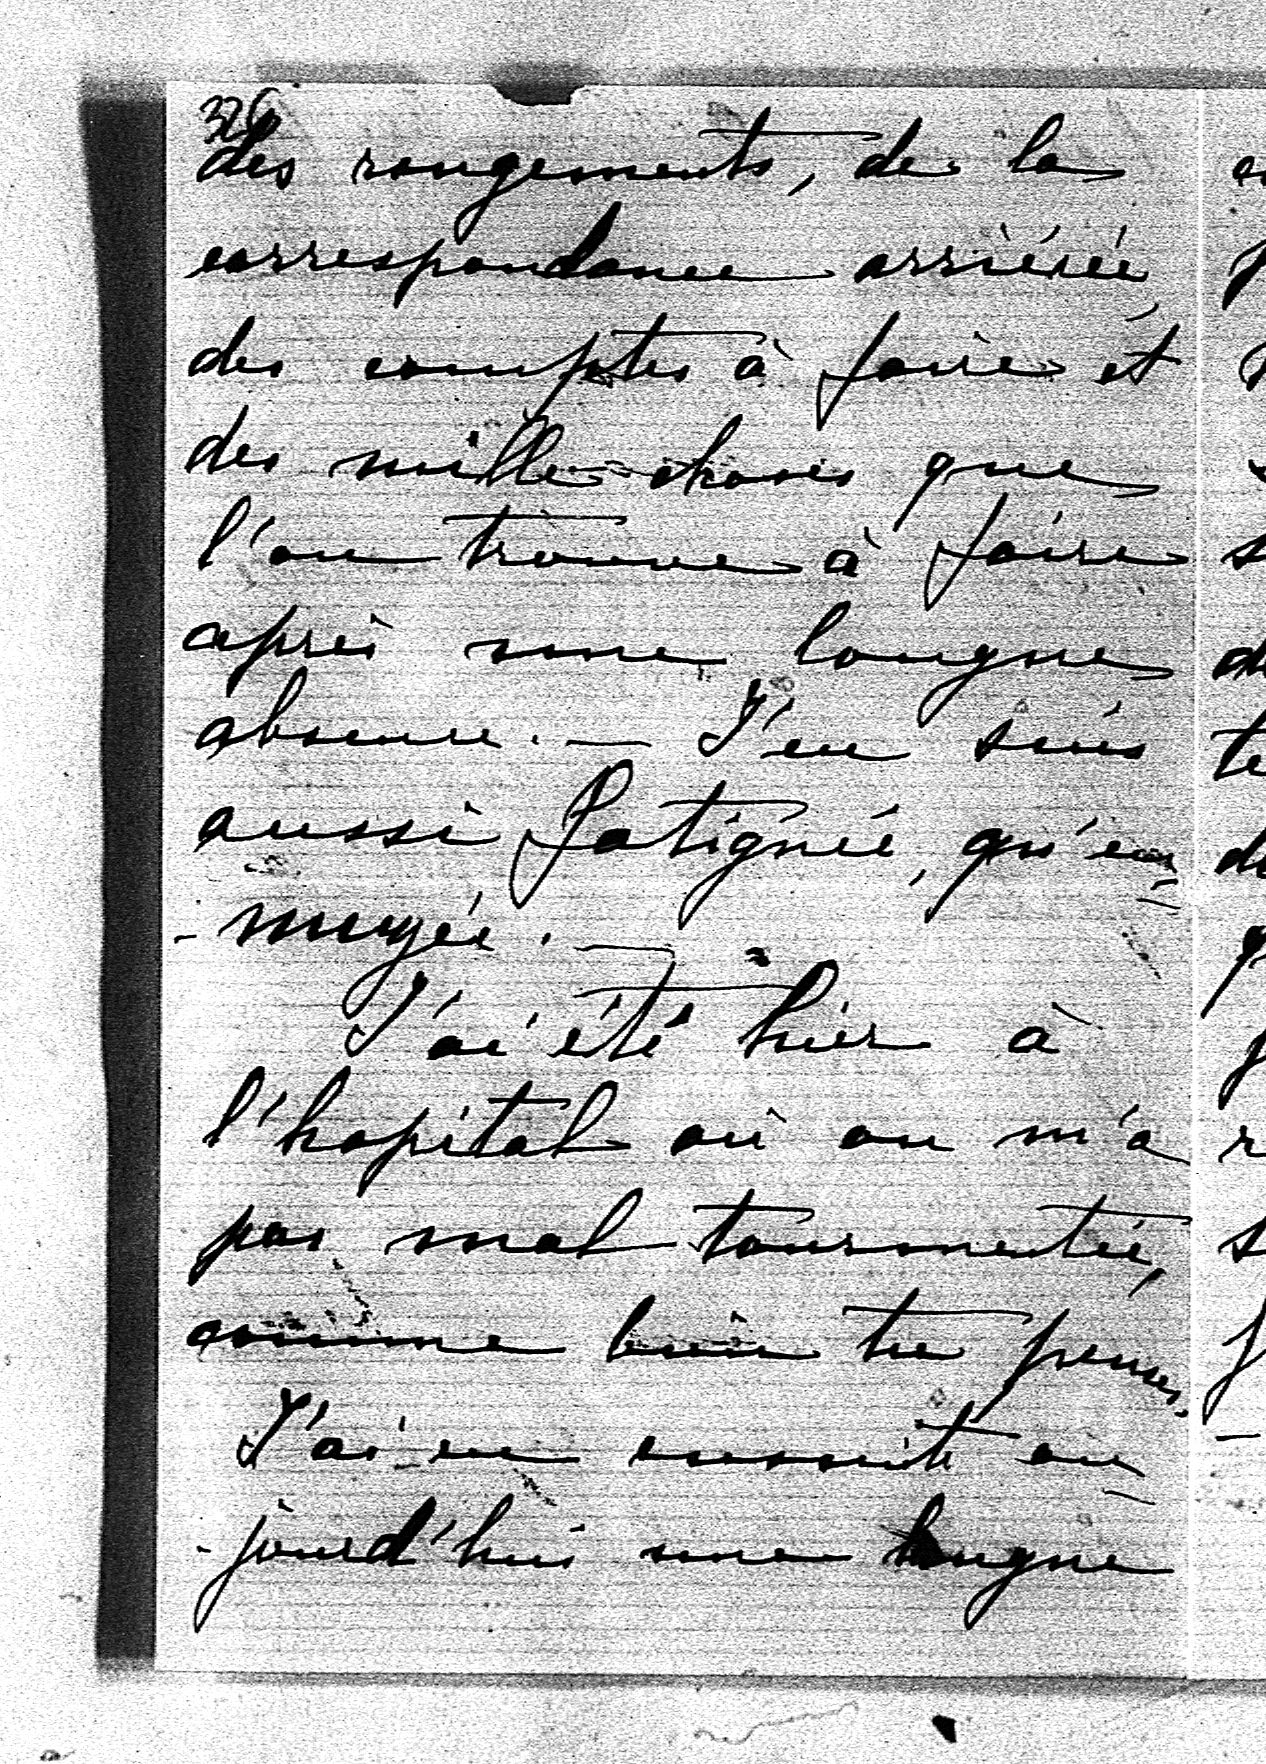 326
des rangements, de la
correspondance arriérée,
des comptes à faire et
des mille choses que
l'on trouve à faire
après une longue
absence. — J'en suis
aussi fatiguée, qu'en-
-nuyée. —
J'ai été hier à
l'hopital où on m'a
pas mal tourmentée,
comme bien tu penses.
J'ai eu ensuite au-
-jourd'hui une longue